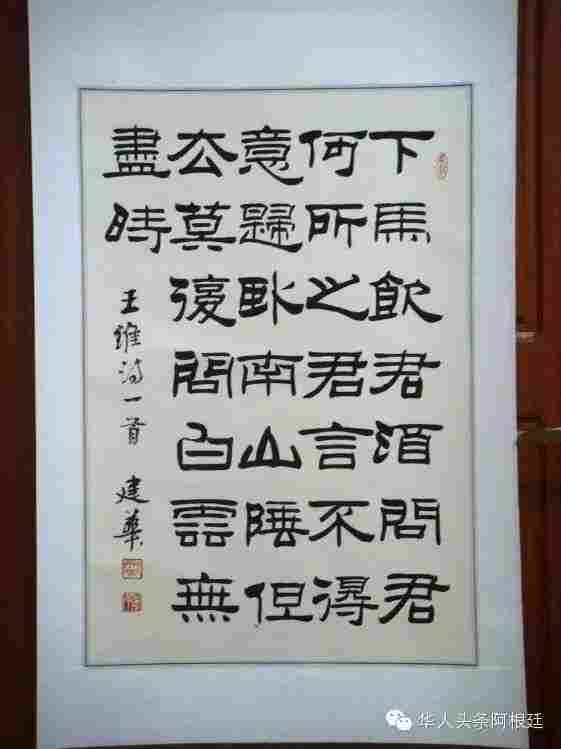 下馬飲君酒問君
何所之君言不得
意歸臥南山陲但
去莫復問白雲無
盡時
王維诗一首 建華
华人头条阿根廷